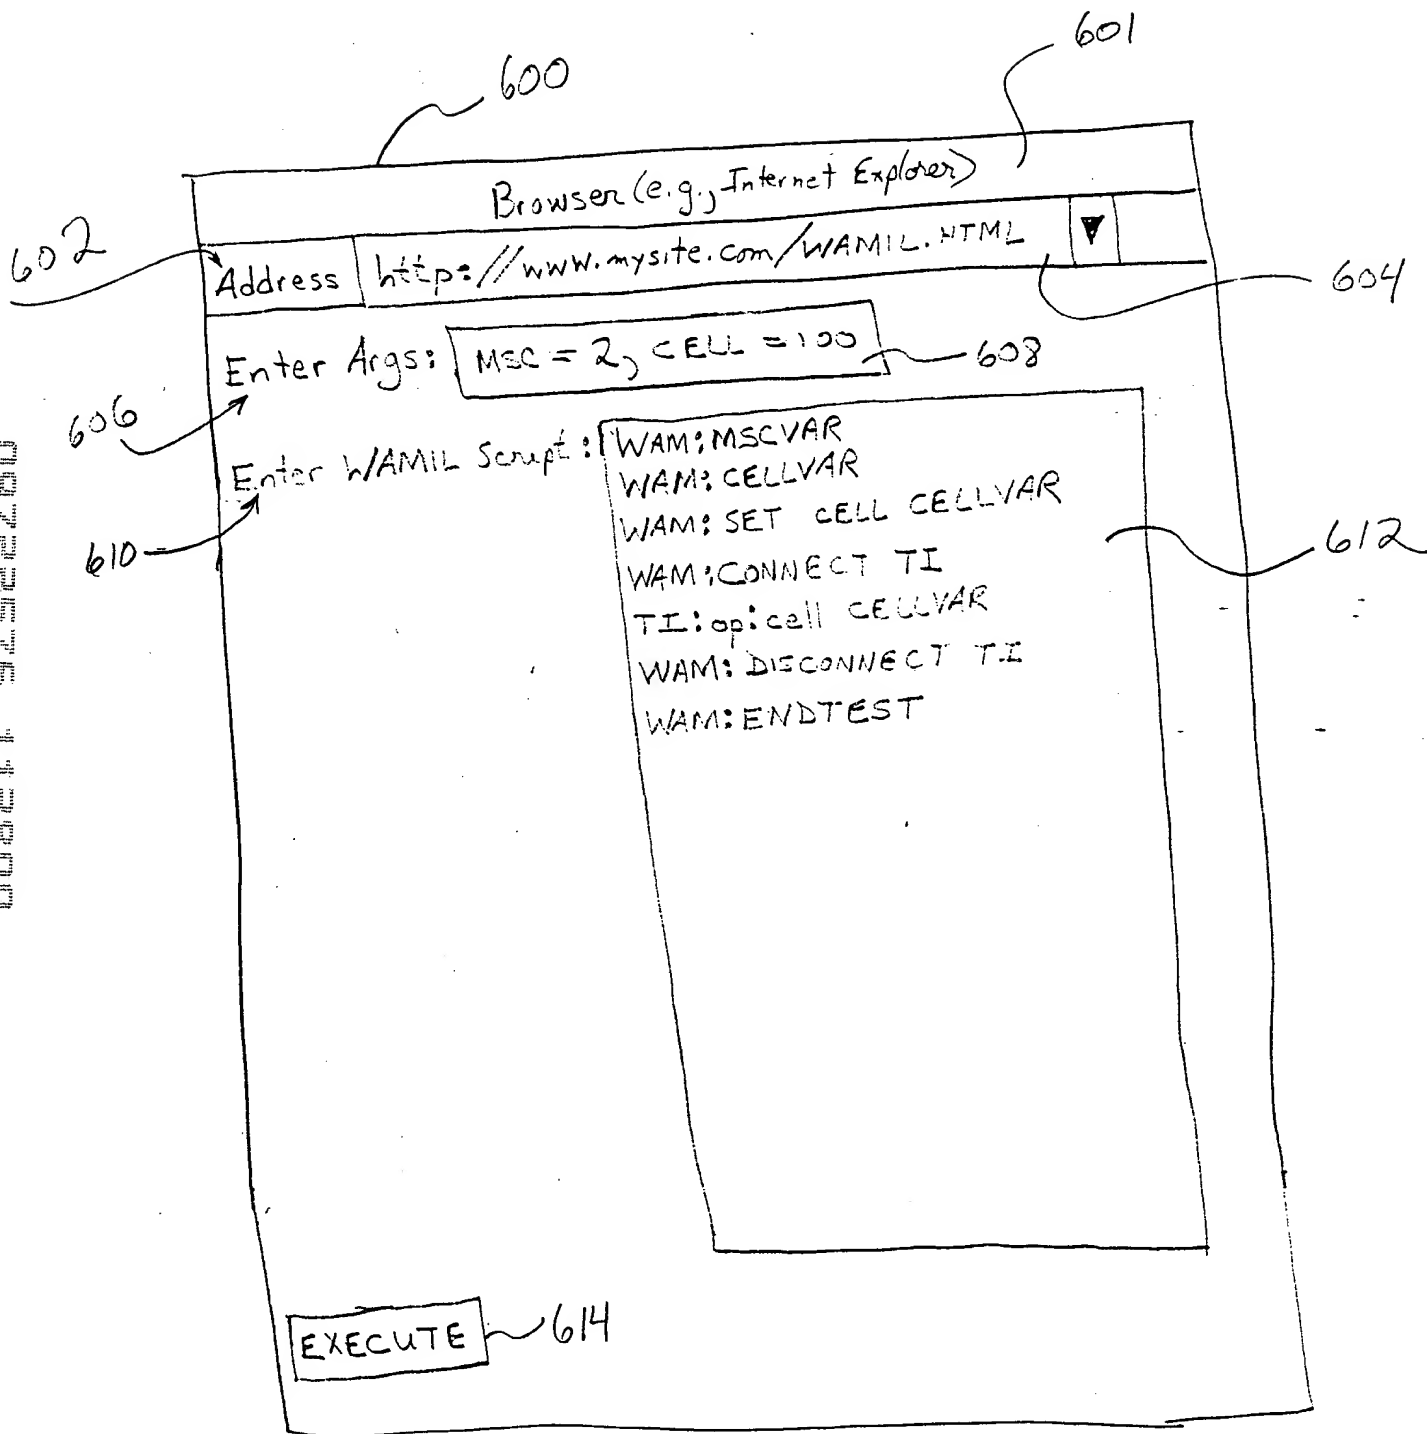 600
601
Browser (e.g., Internet Explorer)
602
Address http://www.mysite.com/WAMIL.HTML
604
Enter Args: MSC = 2, CELL = 100
608
606
Enter WAMIL Script: WAM:MSCVAR
WAM:CELLVAR
WAM: SET CELL CELLVAR
610
612
WAM:CONNECT TI
TI:op:cell CELLVAR
WAM: DISCONNECT TI
WAM:ENDTEST
EXECUTE
614